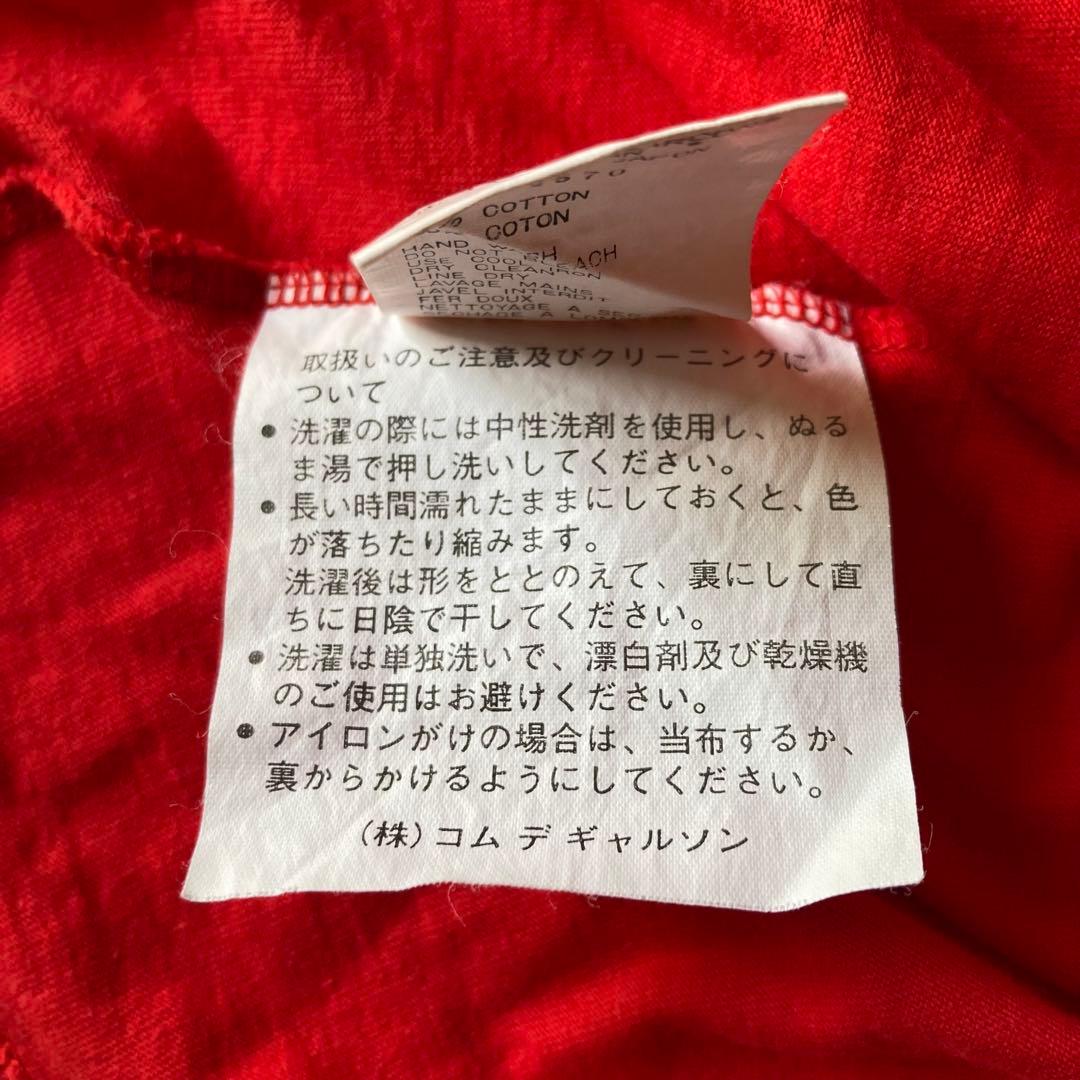 JAPON
COTTON
COTON
HAND
DO NOT ACH
USE COOL
DRY CLEAN
LINE DRY
LAVAGE MAINS
JAVEL INTERDIT
FER DOUX
NETTOYAGE A
取扱いのご注意及びクリーニングに
ついて
● 洗濯の際には中性洗剤を使用し、ぬる
ま湯で押し洗いしてください。
● 長い時間濡れたままにしておくと、色
が落ちたり縮みます。
洗濯後は形をととのえて、裏にして直
ちに日陰で干してください。
● 洗濯は単独洗いで、漂白剤及び乾燥機
のご使用はお避けください。
● アイロンがけの場合は、当布するか、
裏からかけるようにしてください。
(株)コム デ ギャルソン